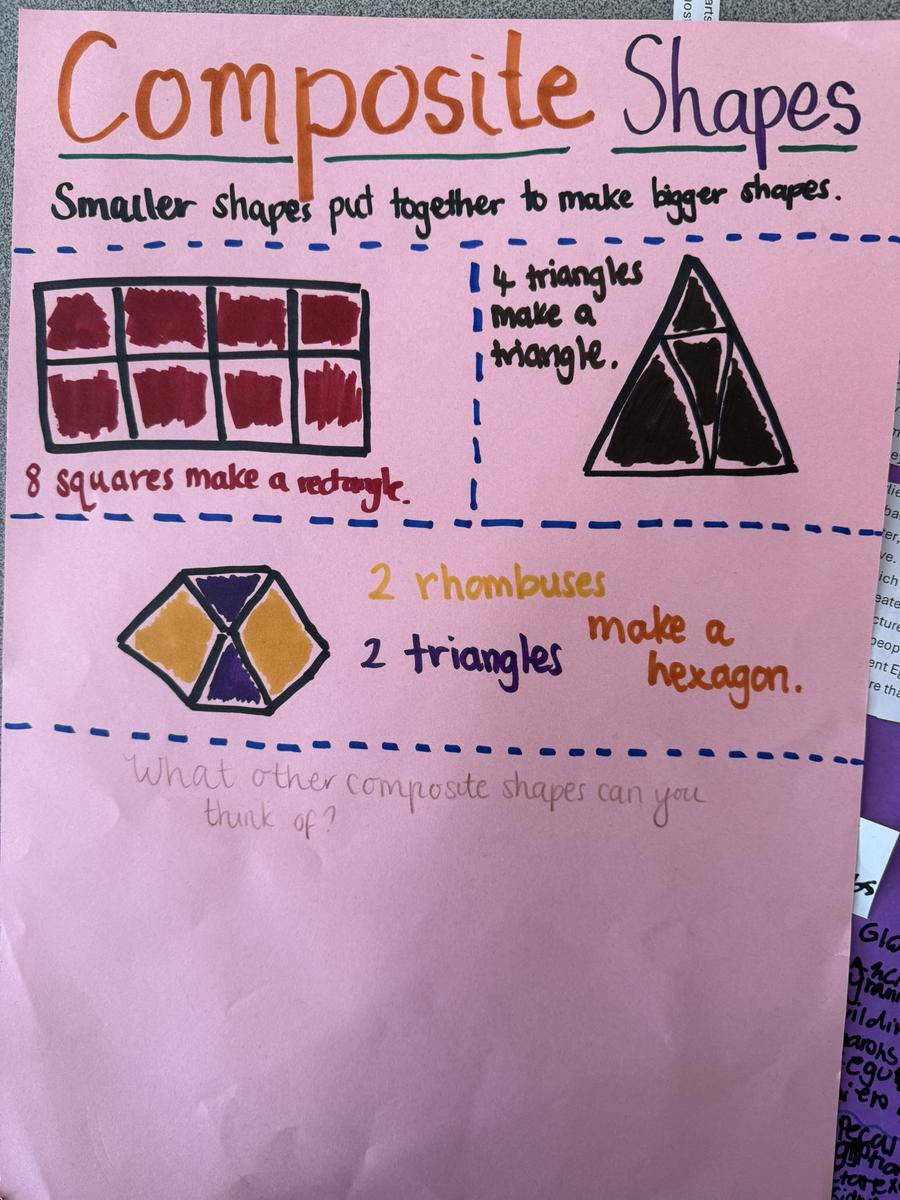 Composite Shapes
Smaller shapes put together to make bigger shapes.
4 triangles
make a
triangle.
8 squares make a rectangle.
2 rhombuses
2 triangles
make a
hexagon.
What other composite shapes can you
think of?